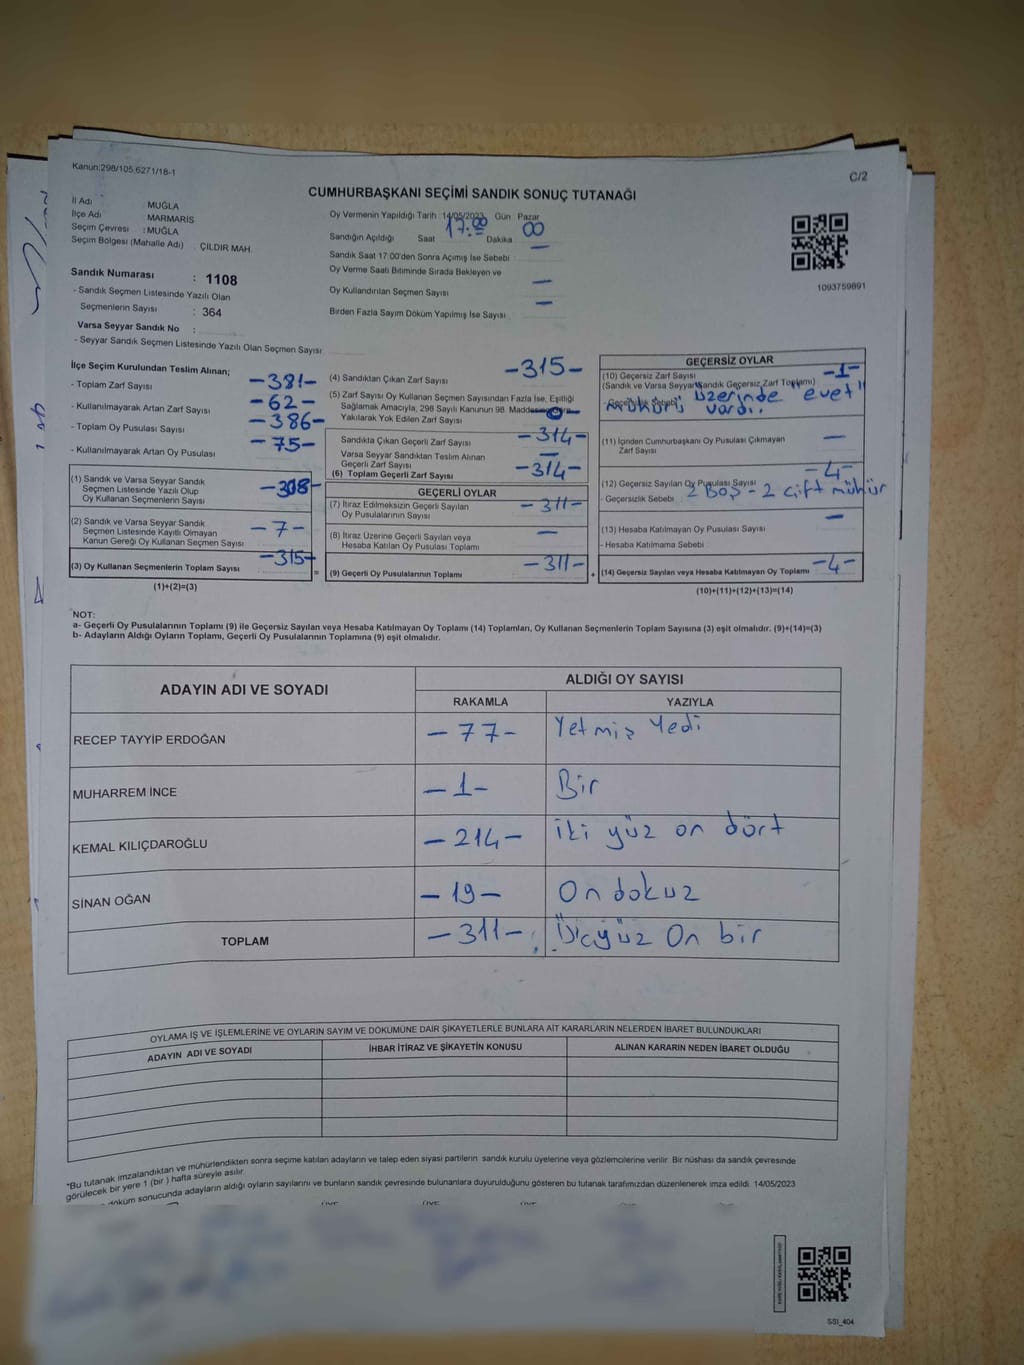 Kanun:298/105,6271/18-1
C/2
CUMHURBAŞKANI SEÇİMİ SANDIK SONUÇ TUTANAĞI
İl Adı : MUĞLA
İlçe Adı MARMARİS
Seçim Çevresi : MUĞLA
Seçim Bölgesi (Mahalle Adı) ÇILDIR MAH.
Sandık Numarası : 1108
- Sandık Seçmen Listesinde Yazılı Olan
Seçmenlerin Sayısı : 364
Varsa Seyyar Sandık No :
- Seyyar Sandık Seçmen Listesinde Yazılı Olan Seçmen Sayısı
Oy Vermenin Yapıldığı Tarih 14/05/2023 Gün : Pazar
Sandığın Açıldığı Saat 17:00 Dakika 00
Sandık Saat 17:00'den Sonra Açımış İse Sebebi —
Oy Verme Saati Bitiminde Sırada Bekleyen ve
Oy Kullandırılan Seçmen Sayısı —
Birden Fazla Sayım Döküm Yapılmış İse Sayısı —
1093759891
İlçe Seçim Kurulundan Teslim Alınan;
- Toplam Zarf Sayısı -381-
- Kullanılmayarak Artan Zarf Sayısı -62-
- Toplam Oy Pusulası Sayısı -386-
- Kullanılmayarak Artan Oy Pusulası -75-
(1) Sandık ve Varsa Seyyar Sandık
Seçmen Listesinde Yazılı Olup
Oy Kullanan Seçmenlerin Sayısı -308-
(2) Sandık ve Varsa Seyyar Sandık
Seçmen Listesinde Kayıtlı Olmayan
Kanun Gereği Oy Kullanan Seçmen Sayısı -7-
(3) Oy Kullanan Seçmenlerin Toplam Sayısı -315-
(1)+(2)=(3)
=
(4) Sandıktan Çıkan Zarf Sayısı -315-
(5) Zarf Sayısı Oy Kullanan Seçmen Sayısından Fazla İse, Eşitliği
Sağlamak Amacıyla, 298 Sayılı Kanunun 98.
Yakılarak Yok Edilen Zarf Sayısı
Sandıkta Çıkan Geçerli Zarf Sayısı -314-
Varsa Seyyar Sandıktan Teslim Alınan
Geçerli Zarf Sayısı —
(6) Toplam Geçerli Zarf Sayısı -314-
GEÇERLİ OYLAR
(7) İtiraz Edilmeksizin Geçerli Sayılan
Oy Pusulalarının Sayısı -311-
(8) İtiraz Üzerine Geçerli Sayılan veya
Hesaba Katılan Oy Pusulası Toplamı —
(9) Geçerli Oy Pusulalarının Toplamı -311-
+
GEÇERSİZ OYLAR
(10) Geçersiz Zarf Sayısı -1-
(Sandık ve Varsa Seyyar Sandık Geçersiz Zarf Toplamı)
üzerinde "evet"
mührü vardı.
(11) İçinden Cumhurbaşkanı Oy Pusulası Çıkmayan
Zarf Sayısı —
(12) Geçersiz Sayılan Oy Pusulası Sayısı -4-
- Geçersizlik Sebebi 2 Boş - 2 çift mühür
(13) Hesaba Katılmayan Oy Pusulası Sayısı —
- Hesaba Katılmama Sebebi
(14) Geçersiz Sayılan veya Hesaba Katılmayan Oy Toplamı -4-
(10)+(11)+(12)+(13)=(14)
NOT:
a- Geçerli Oy Pusulalarının Toplamı (9) ile Geçersiz Sayılan veya Hesaba Katılmayan Oy Toplamı (14) Toplamları, Oy Kullanan Seçmenlerin Toplam Sayısına (3) eşit olmalıdır. (9)+(14)=(3)
b- Adayların Aldığı Oyların Toplamı, Geçerli Oy Pusulalarının Toplamına (9) eşit olmalıdır.
ADAYIN ADI VE SOYADI
ALDIĞI OY SAYISI
RAKAMLA YAZIYLA
RECEP TAYYİP ERDOĞAN -77- Yetmiş Yedi
MUHARREM İNCE -1- Bir
KEMAL KILIÇDAROĞLU -214- iki yüz on dört
SİNAN OĞAN -19- On dokuz
TOPLAM -311- Üçyüz On bir
OYLAMA İŞ VE İŞLEMLERİNE VE OYLARIN SAYIM VE DÖKÜMÜNE DAİR ŞİKAYETLERLE BUNLARA AİT KARARLARIN NELERDEN İBARET BULUNDUKLARI
ADAYIN ADI VE SOYADI İHBAR İTİRAZ VE ŞİKAYETİN KONUSU ALINAN KARARIN NEDEN İBARET OLDUĞU
*Bu tutanak imzalandıktan ve mühürlendikten sonra seçime katılan adayların ve talep eden siyasi partilerin sandık kurulu üyelerine veya gözlemcilerine verilir. Bir nüshası da sandık çevresinde
görülecek bir yere 1 (bir) hafta süreyle asılır.
döküm sonucunda adayların aldığı oyların sayılarını ve bunların sandık çevresinde bulunanlara duyurulduğunu gösteren bu tutanak tarafımızdan düzenlenerek imza edildi. 14/05/2023
SSI_404